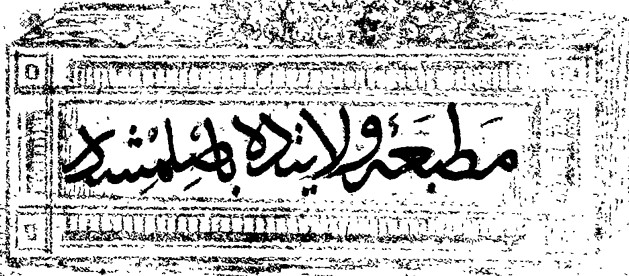 مطبعۀ ولايتده باصلمشدر